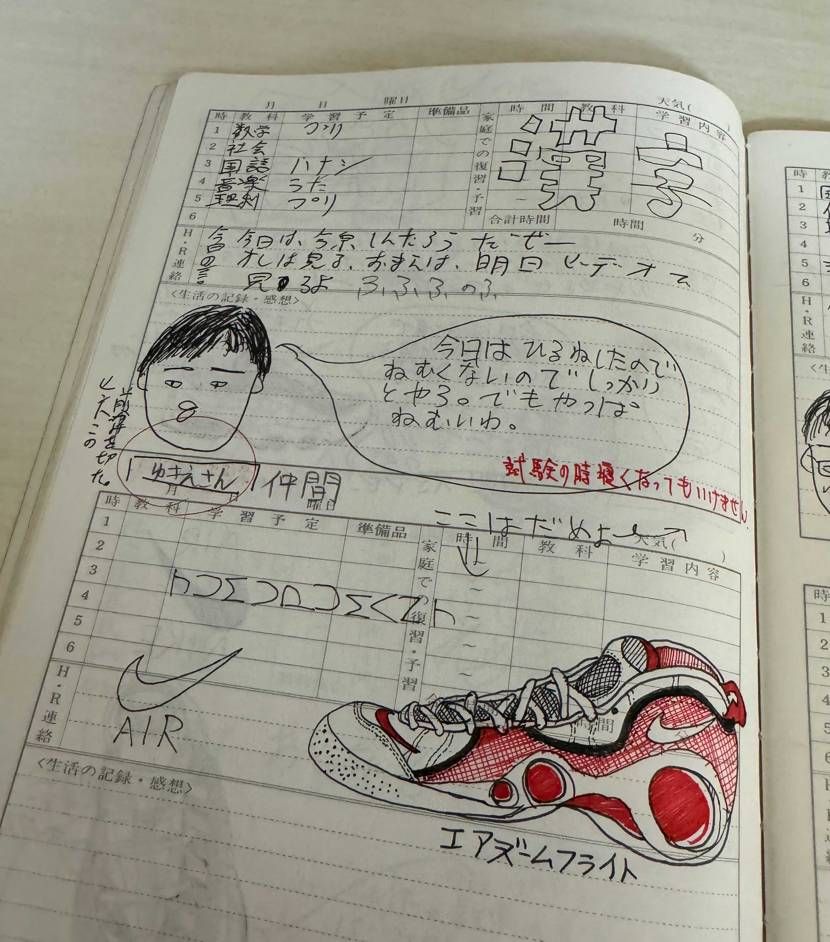 月 日 曜日 天気( )
時 教科 学習予定 準備品 時間 教科 学習内容
1 数学 プリ
2 社会
3 国語 ハナシ
4 音楽 うた
5 理科 プリ
6
家庭での復習・予習
漢字
~
合計時間 時間 分
H・R連絡
今日の言
今日は、
だぜー
オレは見る、おまえは、明日ビデオで
見るよ ふ,ふ,ふ,のふ
〈生活の記録・感想〉
今日はひるねしたので
ねむくないのでしっかり
とやろ。でもやっぱ
ねむいわ。
試験の時寝くなってもいけません
前髪を切った。
ヒントこの
ゆきえさん 仲間
月 日 曜日 天気( )
ここはだめよ
時 教科 学習予定 準備品 時間 教科 学習内容
1
2
3
4
5
6
家庭での復習・予習
~
~
~
~
時間
H・R連絡
AIR
〈生活の記録・感想〉
エアズームフライト